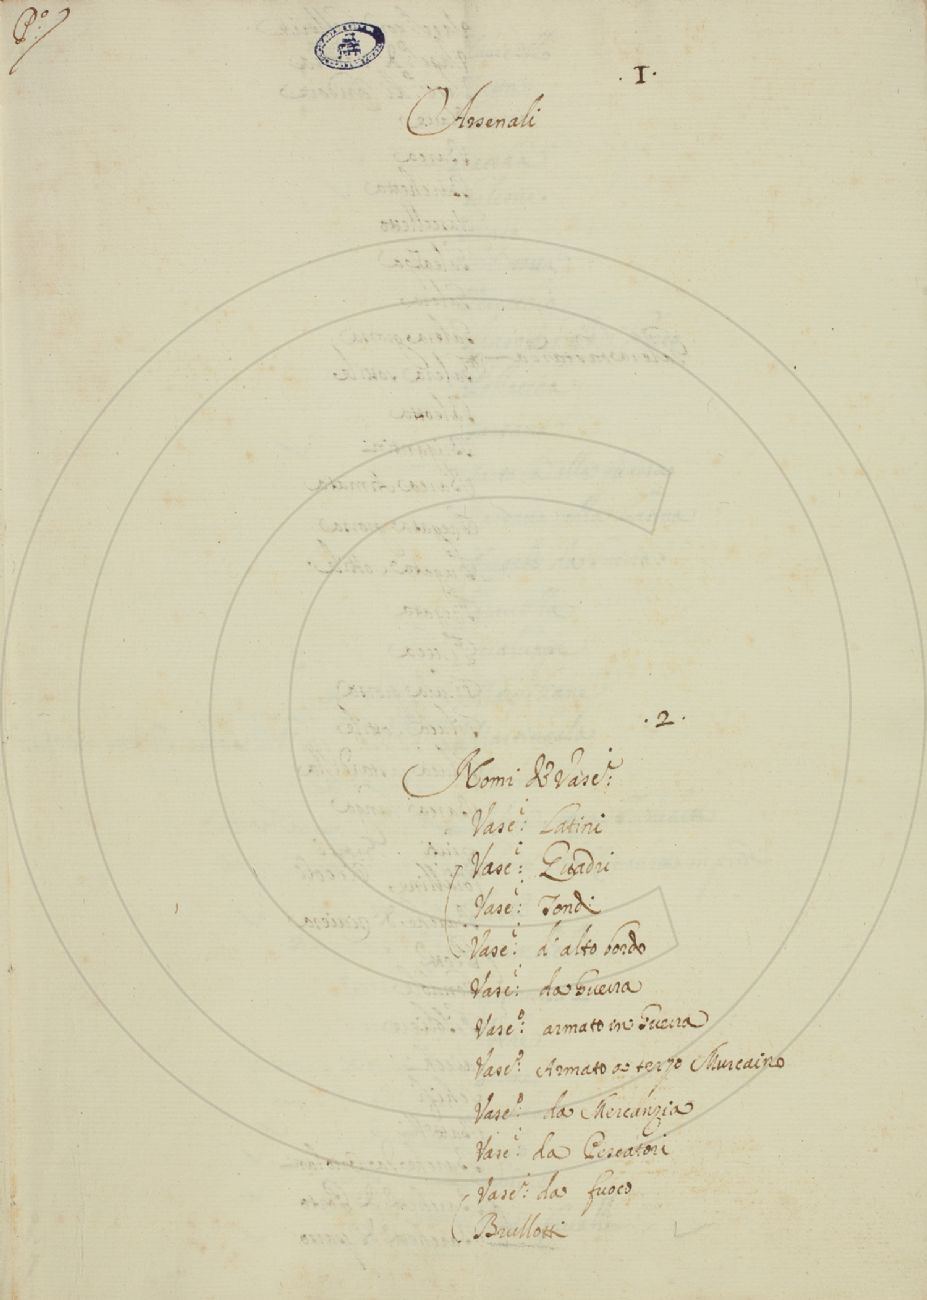 P.º
.1.
Arsenali
.2.
Nomi de Vase.i:
Vase.i: Latini
Vase.i: Quadri
Vase.i: Tondi
Vase.i: d'alto bordo
Vase.i: da Guerra
Vase.o: armato in Guerra
Vase.o: Armato a terzo
Vase.o: da Mercanzia
Vase.i: da Pescatori
Vase.i: da fuoco
Brullotti